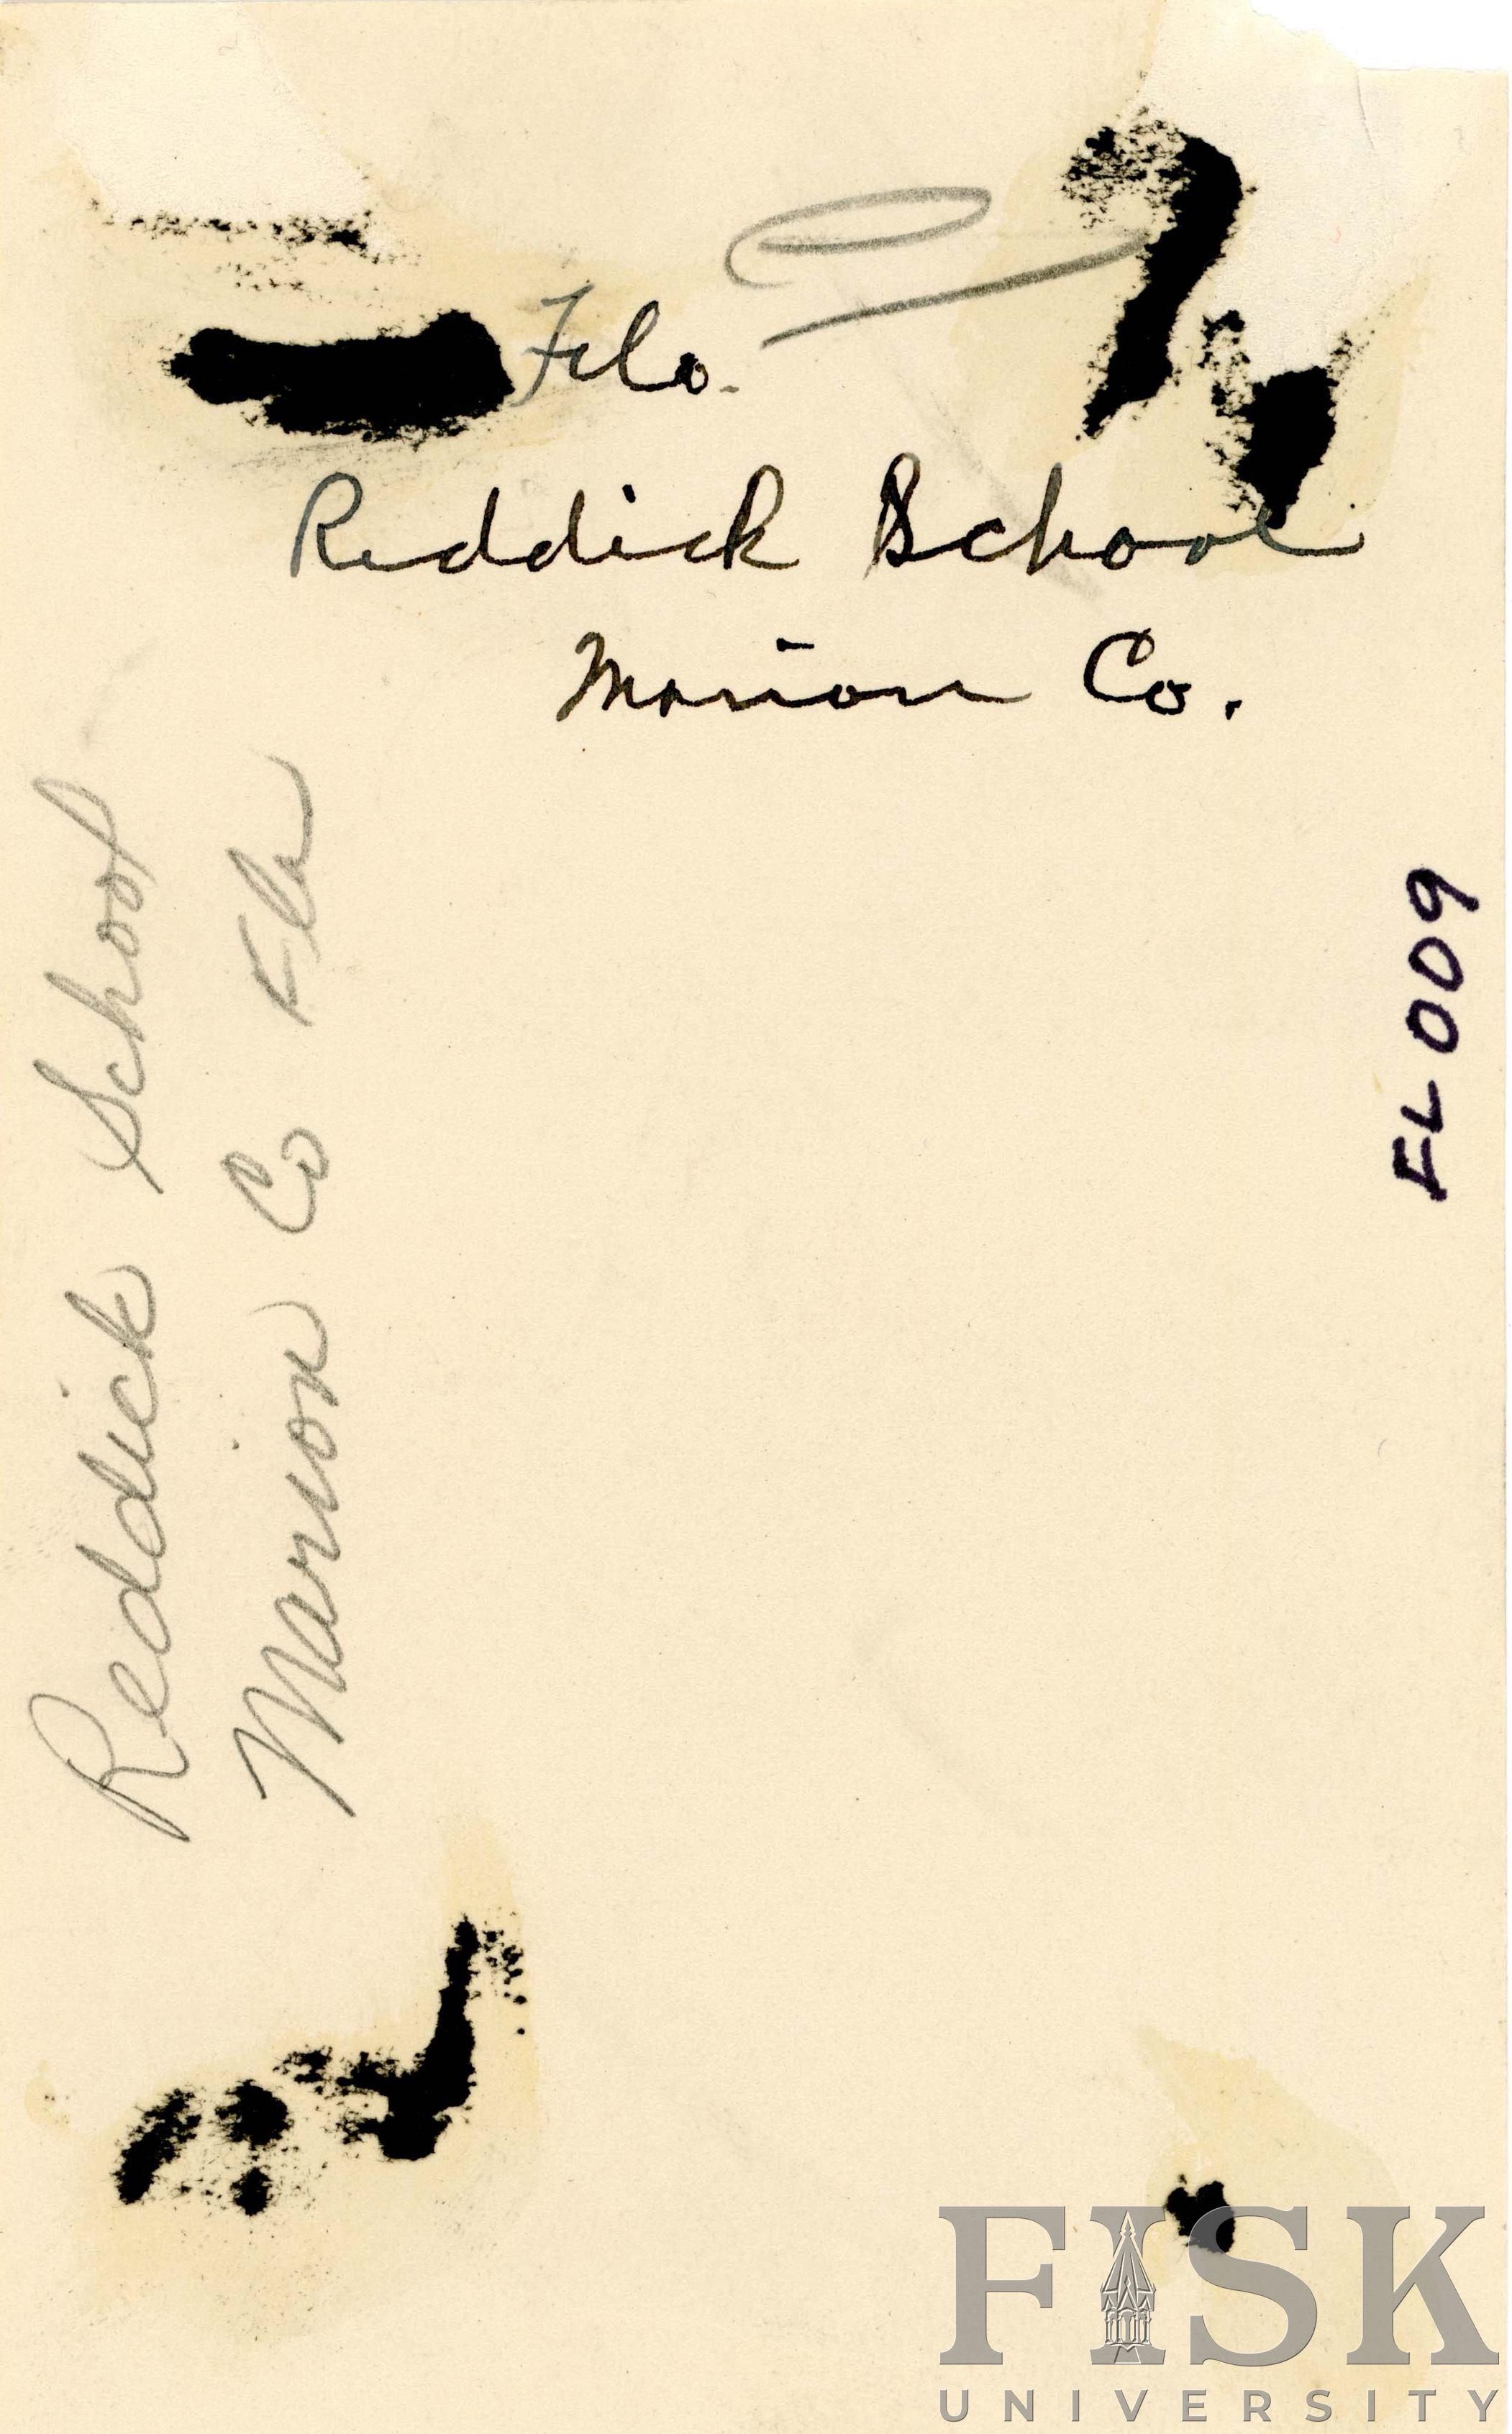 Fla.
Reddick School
Marion Co.
Reddick School
Marion Co Fla
FL 009
FISK
UNIVERSITY